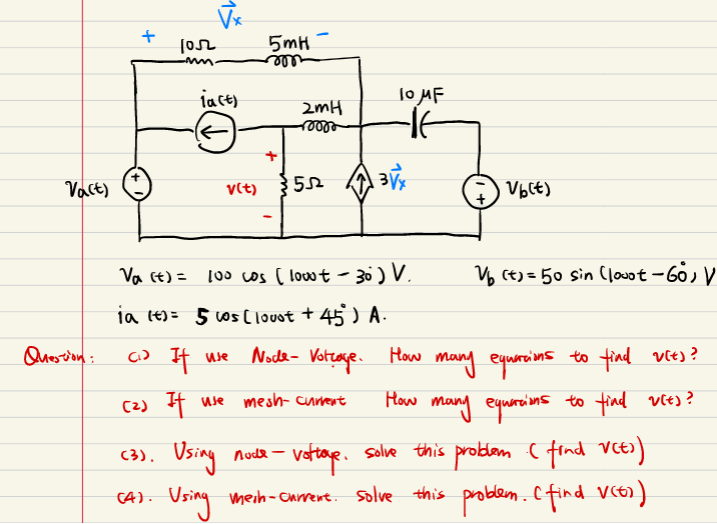 V⃗x
+ 10Ω 5mH −
ia(t) 2mH 10 μF
+
Va(t) + − V(t) 5Ω 3V⃗x − + Vb(t)
−
Va (t) = 100 cos (1000t − 30°) V. Vb (t) = 50 sin (1000t − 60°) V
ia (t) = 5 cos (1000t + 45°) A.
Question: (1) If use Node-Voltage. How many equations to find v(t)?
(2) If use mesh-current How many equations to find v(t)?
(3). Using node-voltage. solve this problem (find V(t))
(4). Using mesh-current. solve this problem. (find V(t))